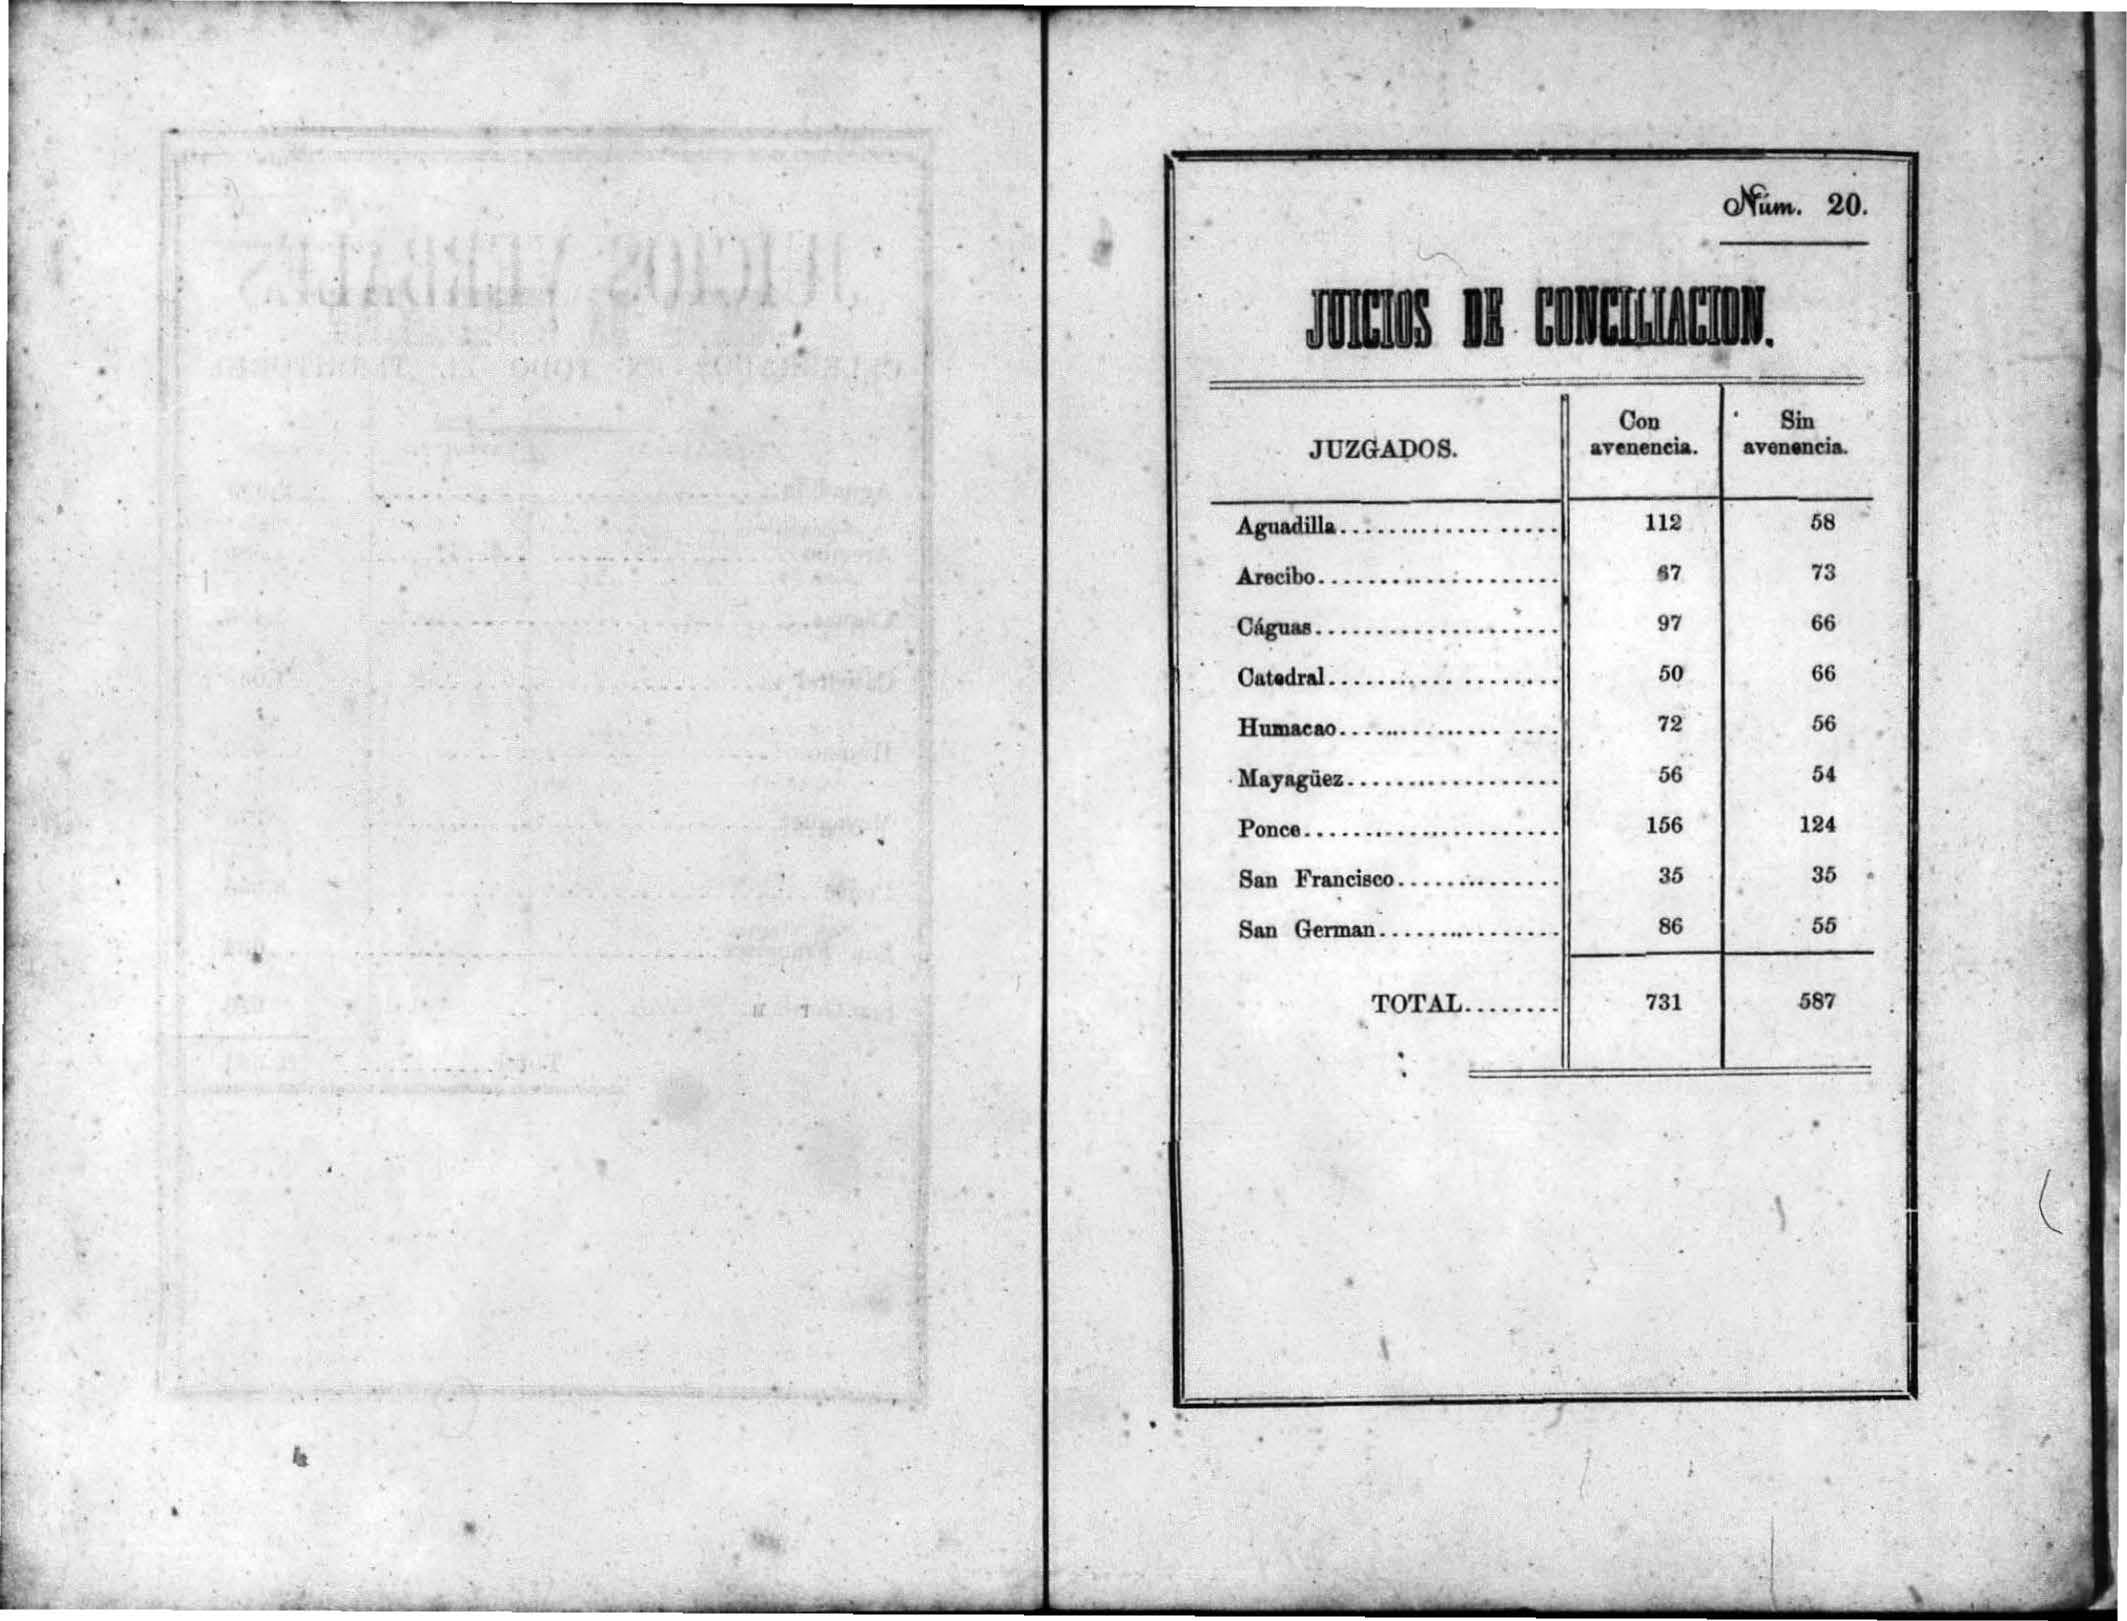 Núm. 20.
JUICIOS DE CONCILIACION.
JUZGADOS. Con avenencia. Sin avenencia.
Aguadilla 112 58
Arecibo 67 73
Cáguas 97 66
Catedral 50 66
Humacao 72 56
Mayagüez 56 54
Ponce 156 124
San Francisco 35 35
San German 86 55
TOTAL 731 587